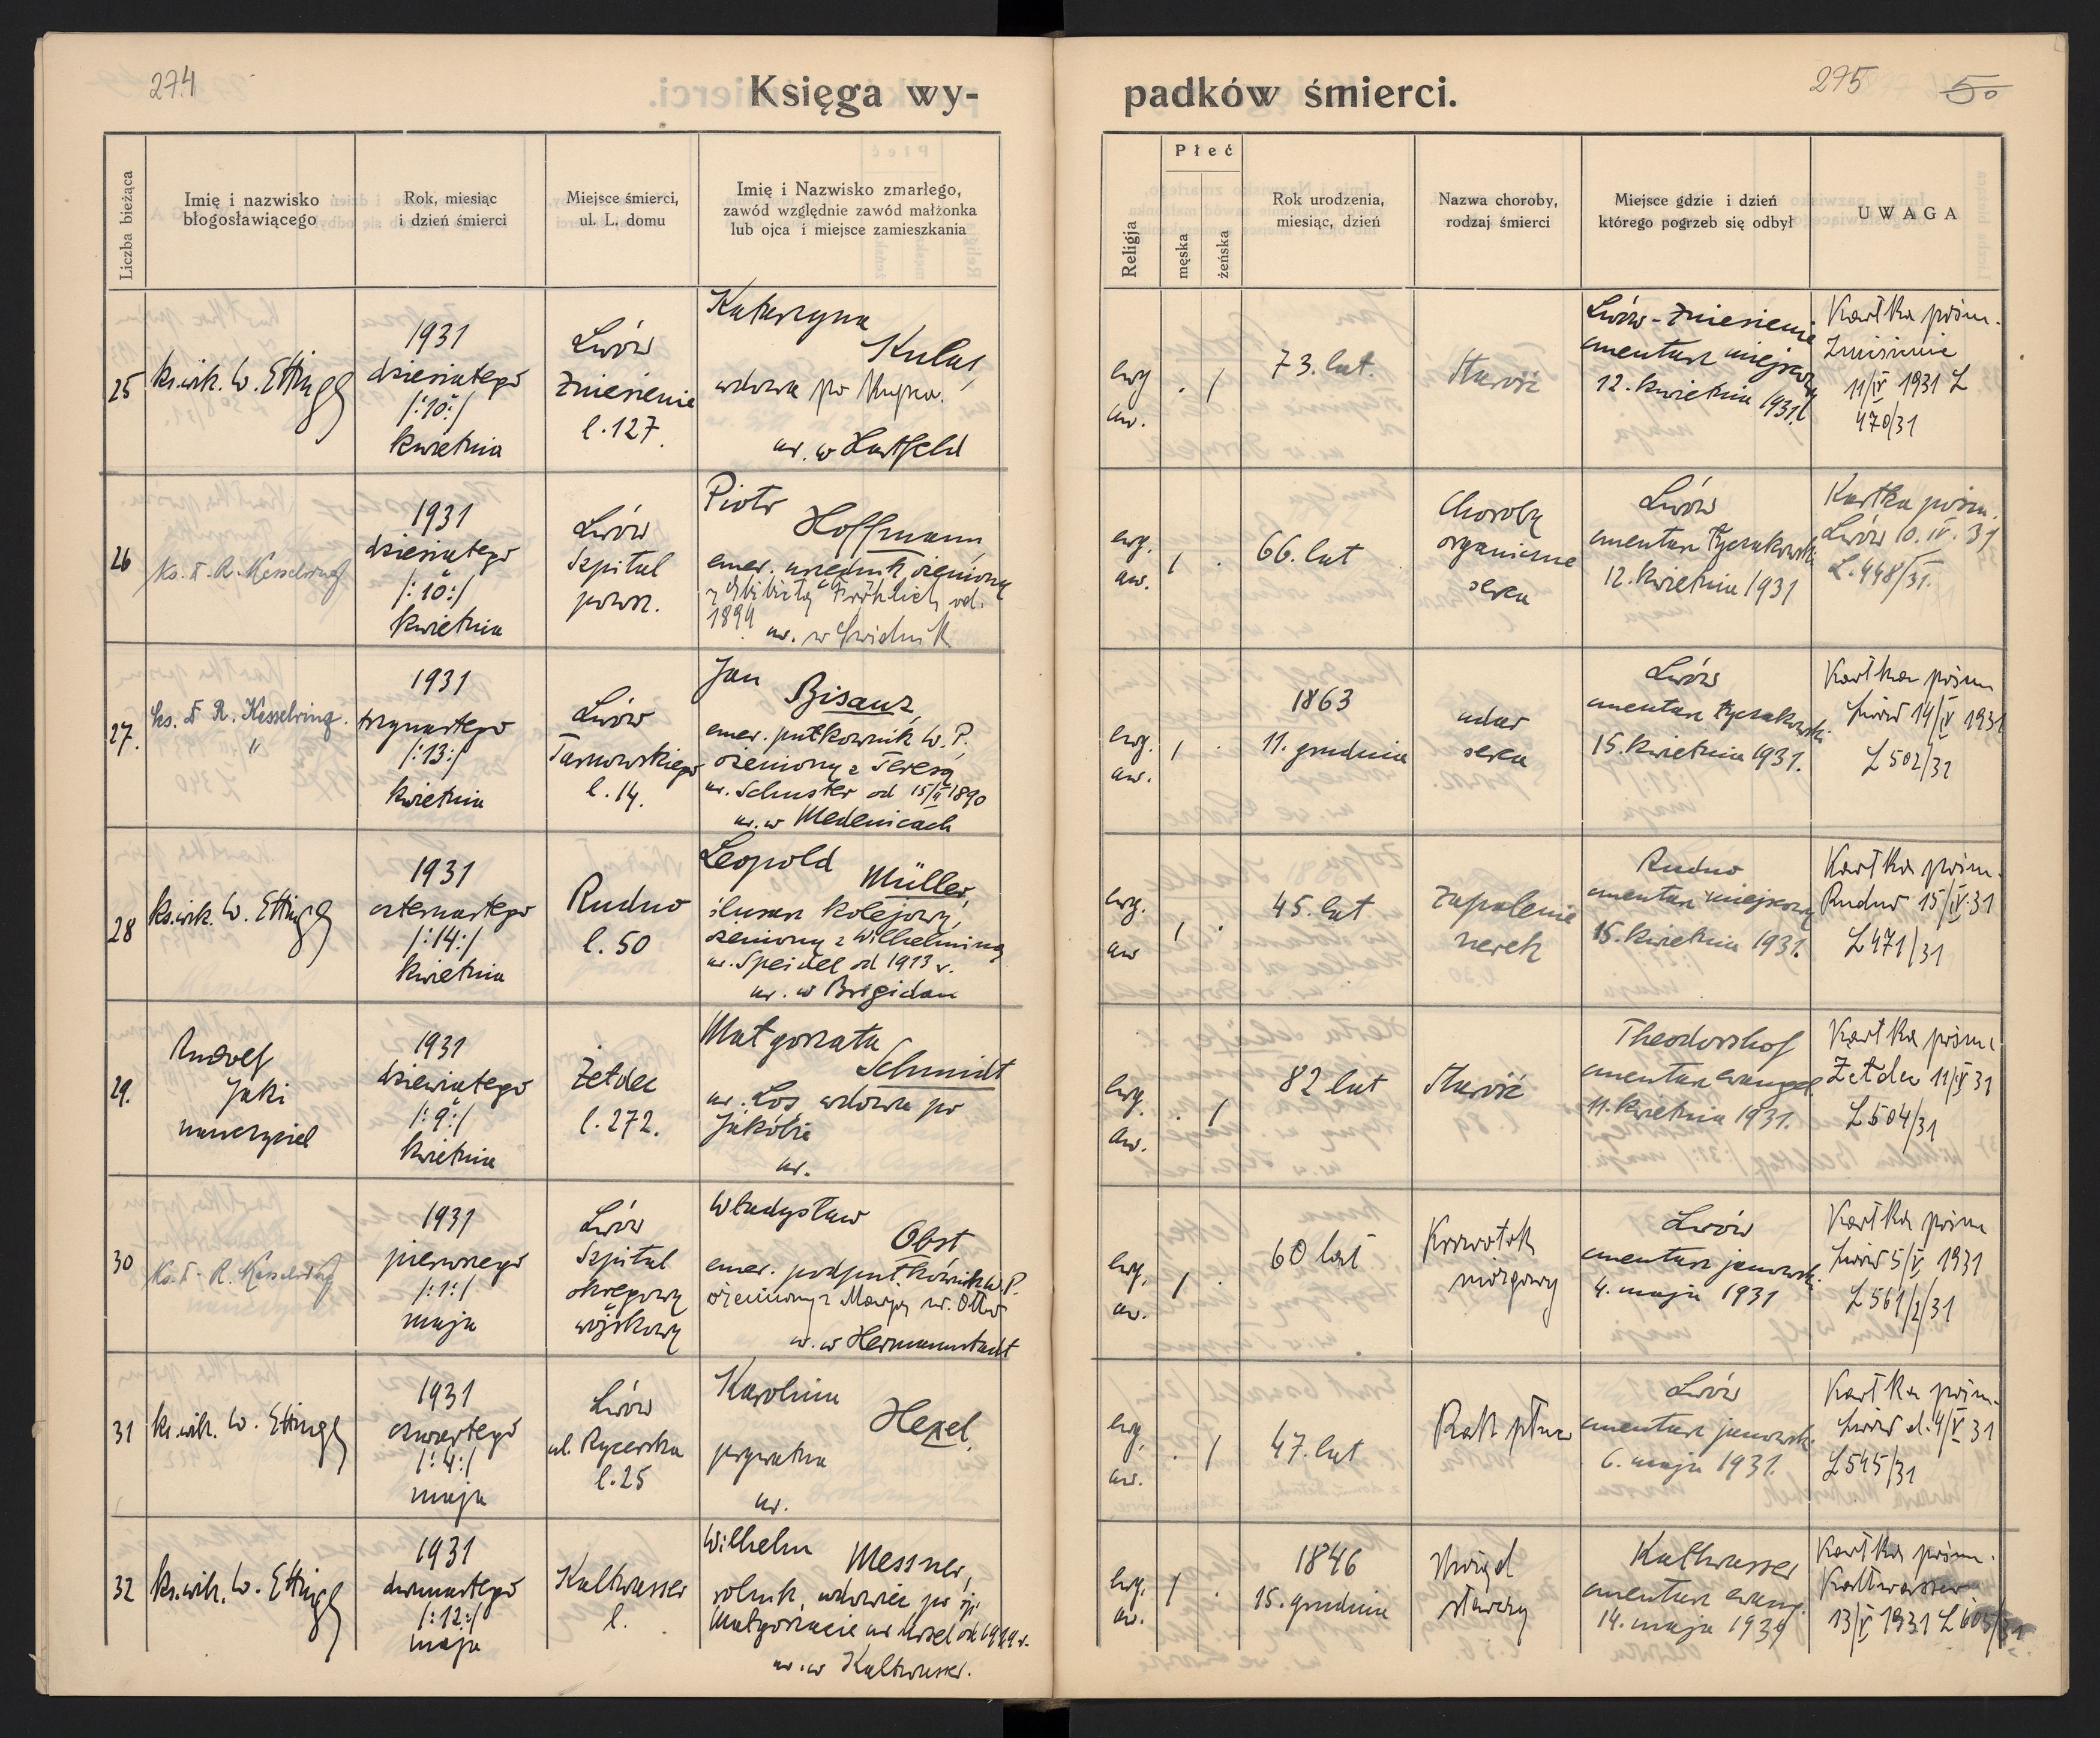 274
Księga wy-
padków śmierci.
275 50
Liczba bieżąca
Imię i nazwisko
błogosławiącego
Rok, miesiąc
i dzień śmierci
Miejsce śmierci,
ul. L. domu
Imię i Nazwisko zmarłego,
zawód względnie zawód małżonka
lub ojca i miejsce zamieszkania
Religja
Płeć
męska
żeńska
Rok urodzenia,
miesiąc, dzień
Nazwa choroby,
rodzaj śmierci
Miejsce gdzie i dzień
którego pogrzeb się odbył
UWAGA
25
ks. wik. W. Ettinger
1931
dziesiątego
/:10:/
kwietnia
Lwów
Zniesienie
l. 127.
Katarzyna
Kulas,
wdowa po
ur. w Hartfeld
ewg.
aw.
. /
73. lat.
Starość
Lwów-Zniesienie
cmentarz miejscowy
12. kwietnia 1931.
Kartka pośm.
Zniesienie
11/IV 1931 L
470/31
26
Ks. D. R. Kesselring
1931
dziesiątego
/:10:/
kwietnia
Lwów
Szpital
powsz.
Piotr
Hoffmann,
emer. urzędnik ożeniony
z Fröhlich od.
1894 ur. w Świdnik
ewg.
aw.
/ .
66. lat
Choroba
organiczna
serca
Lwów
cmentarz Łyczakowski
12. kwietnia 1931
Kartka pośm.
Lwów 10. IV. 31
L. 448/31.
27.
ks. D R. Kesselring.
"
1931
trzynastego
/:13:/
kwietnia
Lwów
Tarnowskiego
l. 14.
Jan
Bisanz,
emer. pułkownik W. P.
ożeniony z Teresą
ur. Schuster od 15/II 1890
ur. w Medenicach
ewg.
aw.
/ .
1863
11. grudnia
udar
serca
Lwów
cmentarz Łyczakowski
15. kwietnia 1931.
Kartka pośm
Lwów 14/IV 1931
L 502/31
28
ks. wik. W. Ettinger
1931
czternastego
/:14:/
kwietnia
Rudno
l. 50
Leopold
Müller,
ślusarz kolejowy,
ożeniony z Wilhelminą
ur. Speidel od 1913 r.
ur. w Brigidau
ewg.
aw
/ .
45. lat
zapalenie
nerek
Rudno
cmentarz miejscowy
15. kwietnia 1931.
Kartka pośm.
Rudno 15/IV 31
L 471/31
29.
Rudolf
Jaki
nauczyciel
1931
dziewiątego
/:9:/
kwietnia
Żełdec
l. 272.
Małgorzata
Schmidt
ur. Łoś, wdowa po
Jakóbie
ur.
ewg.
aw.
. /
82 lat
Starość
Theodorshof
cmentarz ewangel.
11. kwietnia 1931.
Kartka pośm.
Żełdec 11/IV 31
L 504/31
30
Ks. D. R. Kesselring
1931
pierwszego
/:1:/
maja
Lwów
Szpital
okręgowy
wojskowy
Władysław
Obst
emer. podpułkownik W. P.
ożeniony z Marją ur. Otto
ur. w Hermannstadt
ewg.
aw.
/ .
60 lat
Krwotok
mózgowy
Lwów
cmentarz janowski
4. maja 1931
Kartka pośm
Lwów 5/V 1931
L 561/2/31
31
ks. wik. W. Ettinger
1931
czwartego
/:4:/
maja
Lwów
ul. Rycerska
l. 25
Karolina
Hexel,
prywatna
ur.
ewg.
aw.
. /
47. lat
Rak płuc
Lwów
cmentarz janowski
6. maja 1931.
Kartka pośm.
Lwów d. 4/V 31
L 545/31
32
ks. wik. W. Ettinger
1931
dwunastego
/:12:/
maja
Kaltwasser
l.
Wilhelm Messner,
rolnik, wdowiec po śp.
Małgorzacie ur. od 1919 r.
ur. w Kaltwasser.
ewg.
aw.
/ .
1846
15. grudnia
Uwiąd
starczy
Kaltwasser
cmentarz ewang.
14. maja 1931
Kartka pośm.
Kaltwasser
13/V 1931 L 605/31